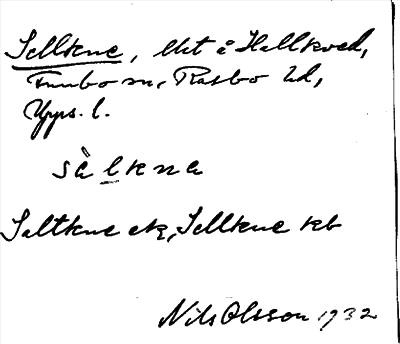 Sellkne, lht å Hallkved,
Funbo sn, Rasbo hd,
Upps. l.
sàlkna
Saltkne ek, Sellkne kb
Nils Olsson 1932